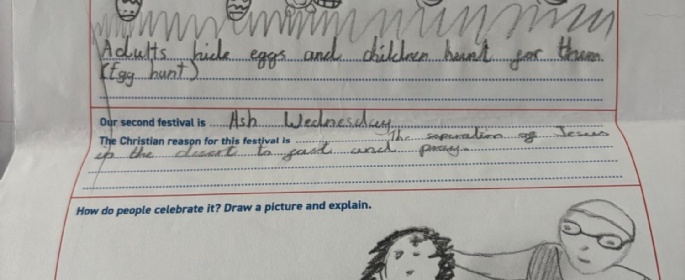 Adults hide eggs and children hunt for them.
(Egg hunt)
Our second festival is Ash Wednesday
The Christian reason for this festival is The separation of Jesus
in the desert to fast and pray.
How do people celebrate it? Draw a picture and explain.